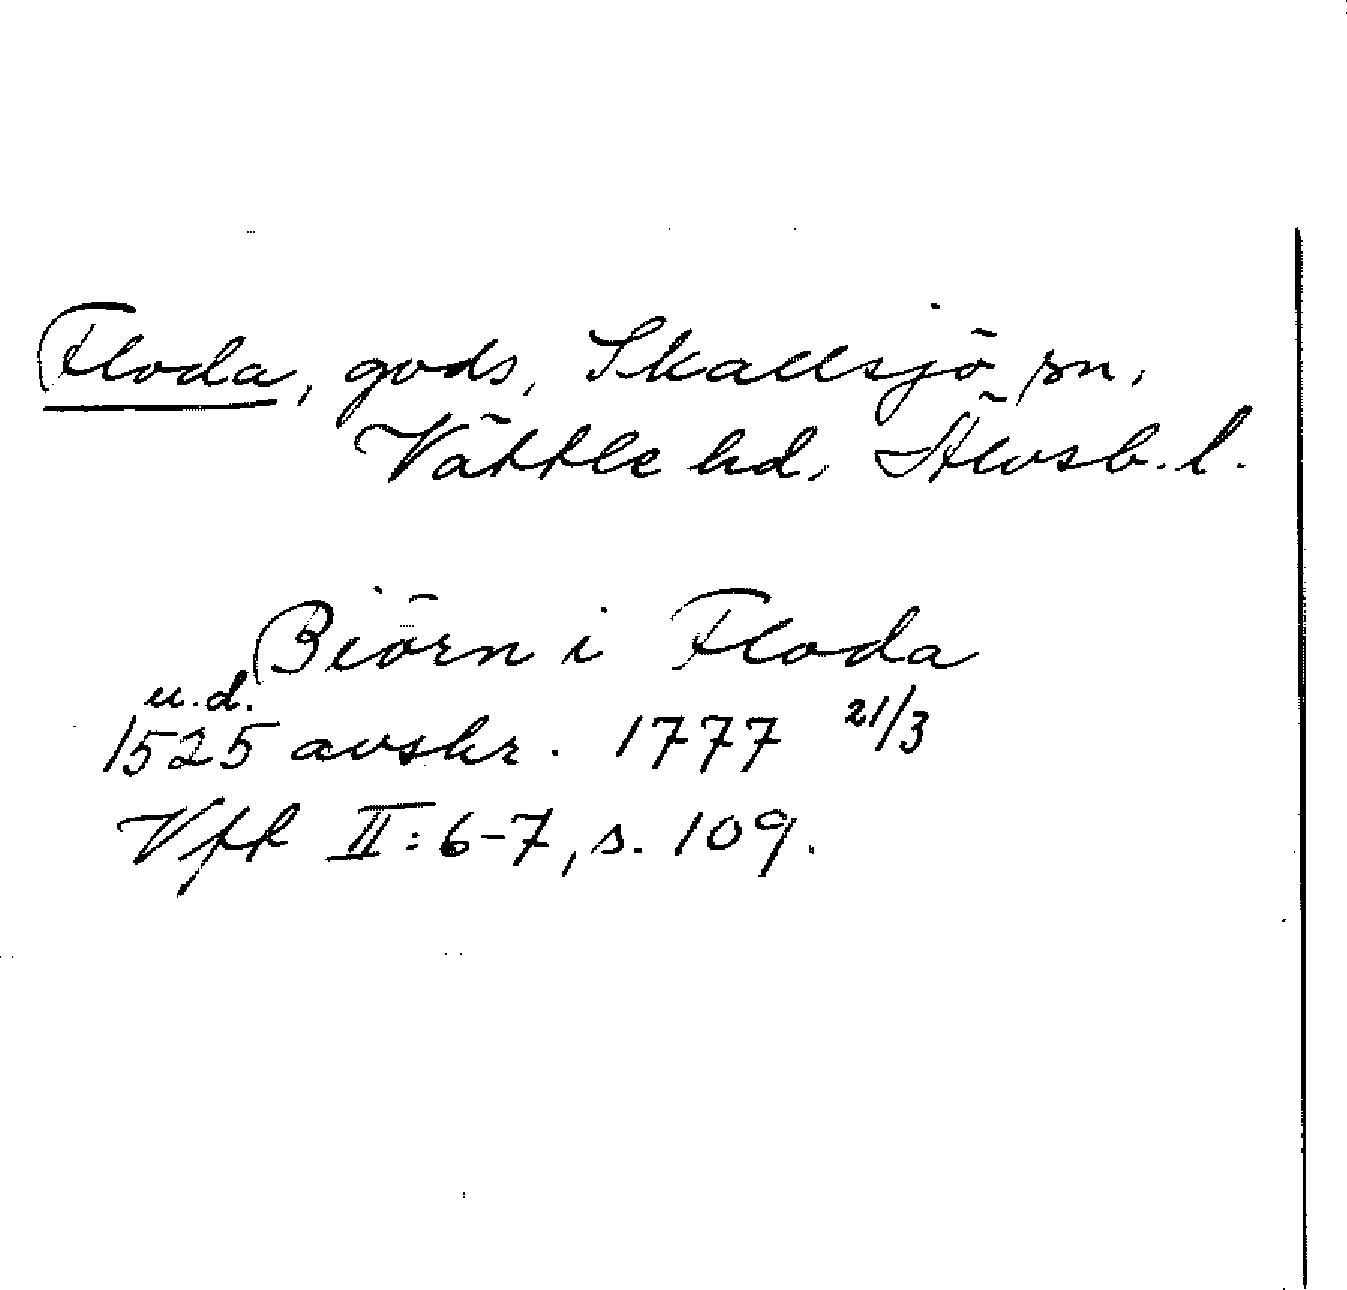 Floda, gods, Skallsjö sn,
Vättle hd, Älvsb. l.
Biörn i Floda
u.d.
1525 avskr. 1777 21/3
Vft II: 6-7, s. 109.